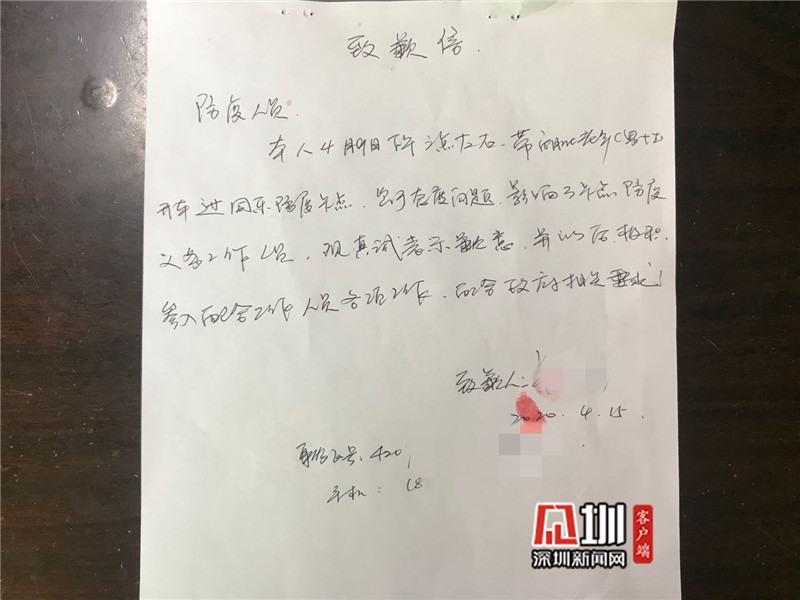 致歉信.
防疫人员.
本人4月9日下午 点左右.带 老年 男士
开车进 园东防疫卡点.出于态度问题.影响了卡点防疫
义务工作人员,现真诚表示歉意,并以后积极
参入配合工作人员各项工作.配合政府相关要求!
致歉人:
2020.4.15.
身份证号:420
手机:18
见圳
客户端
深圳新闻网